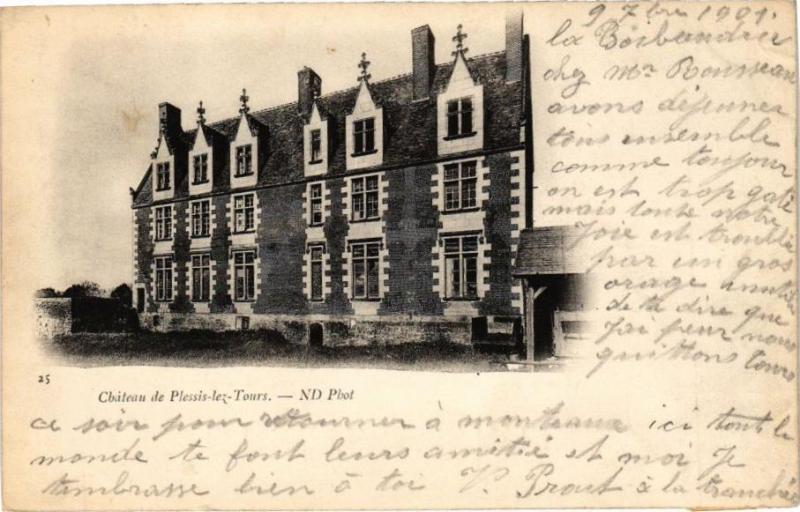 9 7bre 1901.
la
chez Mr Rousseau
avons déjeuner
tous ensemble
comme toujour
on est trop gaté
mais toute notre
Joie est troublé
par un gros
orage inutile
de te dire que
J'ai peur nous
quittons tours
25
Château de Plessis-lez-Tours. — ND Phot
ce soir pour retourner à monteaux ici tout le
monde te font leurs amitié et moi Je
t'embrasse bien à toi V. Prout à la tranchée